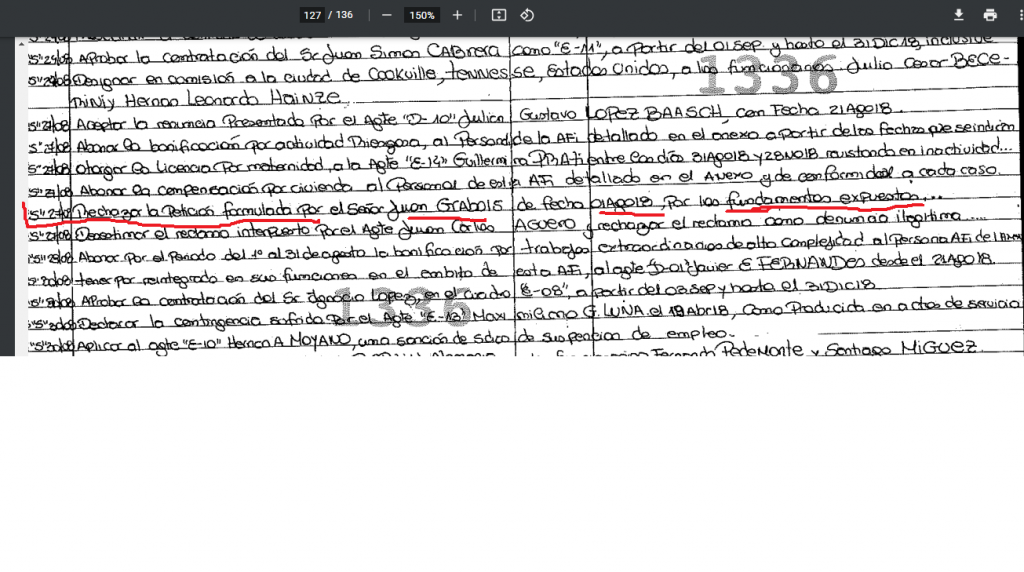 127 / 136 — 150% +
Aprobar la contratación del Sr Juan Simon CABRERA como "E-11", a Partir del 01SEP y hasta el 31DIC18, inclusive
Designar en comisión a la ciudad de Cookville, tennessee, Estados Unidos, a los funcionarios Julio Cesar BECE-
MINI y Hernan Leonardo Hainze.
1336
Aceptar la renuncia Presentada Por el Agte "D-10" Julian Gustavo LOPEZ BAASCH, con Fecha 21AGO18.
Abonar la bonificación por actividad Riesgosa, al Personal de la AFI detallado en el anexo a partir de las fechas que se indican
Otorgar la Licencia Por maternidad, a la Agte "E-14" Guillermina PRATI entre los días 31AGO18 y 28NOV18 revistando en inactividad...
Abonar la compensación por vivienda al Personal de esta AFI detallado en el ANEXO y de conformidad a cada caso.
Rechazar la Petición formulada Por el Señor Juan GRABOIS de fecha 01AGO18, Por los fundamentos expuestos...
Desestimar el reclamo interpuesto Por el Agte Juan Carlos AGUERO y rechazar el reclamo como denuncia ilegitima.....
Abonar Por el Periodo del 1° al 31 de agosto la bonificación Por trabajos extraordinarios de alta complejidad al Persona AFI del
tener por reintegrado en sus funciones en el ambito de esta AFI, al agte "D-01" Javier E FERNANDES desde el 21AGO18.
Aprobar la contratación del Sr. Ignacio Lopez, en el cuadro "E-08", a partir del 03SEP y hasta el 31DIC18
1336
Destacar la contingencia sufrida Por el Agte "E-13" Maximiliano G. LUNA el 19Abr18, como Producida en actos de servicio
Aplicar al agte "E-10" Hernan A MOYANO, una sanción de de suspencion de empleo.
Fernando Pedemonte y Santiago MIGUEZ.